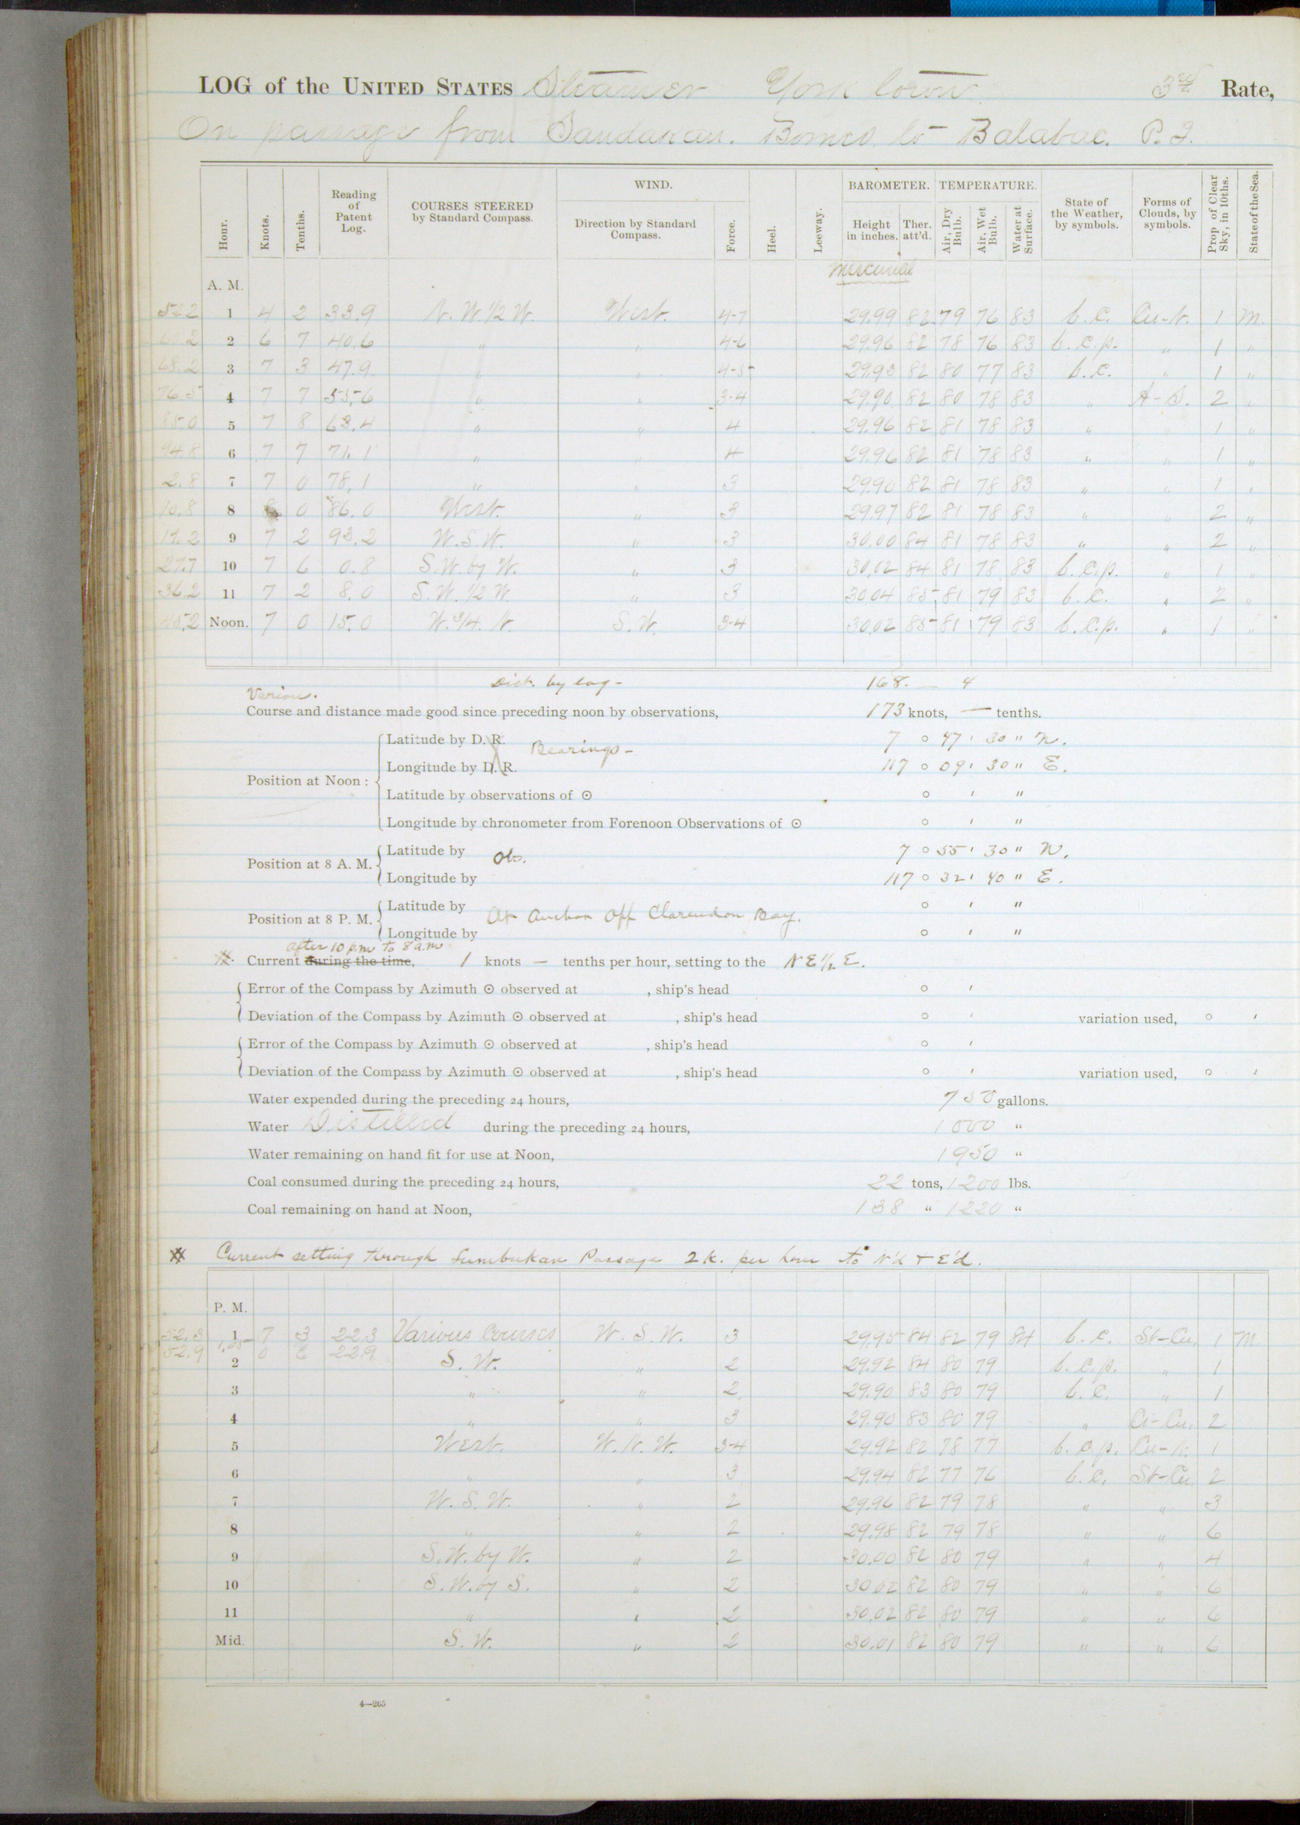 LOG of the UNITED STATES Steamer York town 3rd Rate,
On passage from Sandakan. Borneo to Balabac. P.I.
Hour. Knots. Tenths. Reading of Patent Log. COURSES STEERED by Standard Compass. WIND. Direction by Standard Compass. Force. Heel. Leeway. BAROMETER. Height in inches. Ther. att'd. TEMPERATURE. Air, Dry Bulb. Air, Wet Bulb. Water at Surface. State of the Weather, by symbols. Forms of Clouds, by symbols. Prop of Clear Sky, in 10ths. State of the Sea.
Mercurial
A. M.
52.2 1 4 2 33.9 N. W. 1/2 W. West. 4-7 29.99 82 79 76 83 b.c. Cu-N. 1 M.
2 6 7 40.6 " " 4-6 29.96 82 78 76 83 b.c.p. " 1 "
68.2 3 7 3 47.9 " " 4-5 29.93 82 80 77 83 b.c. " 1 "
76.5 4 7 7 55.6 " " 3-4 29.90 82 80 78 83 " A-S. 2 "
85.0 5 7 8 63.4 " " 4 29.96 82 81 78 83 " " 1 "
94.8 6 7 7 71.1 " " 4 29.96 82 81 78 83 " " 1 "
2.8 7 7 0 78.1 " " 3 29.90 82 81 78 83 " " 1 "
10.8 8 0 86.0 West. " 3 29.97 82 81 78 83 " " 2 "
19.2 9 7 2 93.2 W.S.W. " 3 30.00 84 81 78 83 " " 2 "
27.7 10 7 6 0.8 S.W. by W. " 3 30.02 84 81 78 83 b.c.p. " 1 "
36.2 11 7 2 8.0 S.W. 1/2 W. " 3 30.04 85 81 79 83 b.c. " 2 "
45.2 Noon. 7 0 15.0 W. 3/4. N. S.W. 3-4 30.02 85 81 79 83 b.c.p. " 1 "
Dist. by log - 168. — 4
Various.
Course and distance made good since preceding noon by observations, 173 knots, — tenths.
Position at Noon:
Latitude by D. R. 7 ° 47 ' 30 " N.
Bearings -
Longitude by D. R. 117 ° 09 ' 30 " E.
Latitude by observations of ☉ ° ' "
Longitude by chronometer from Forenoon Observations of ☉ ° ' "
Position at 8 A. M.
Latitude by Obs. 7 ° 55 ' 30 " N.
Longitude by 117 ° 32 ' 40 " E.
Position at 8 P. M.
Latitude by At anchor off Clarendon Bay. ° ' "
Longitude by ° ' "
after 10 p.m to 8 a.m
Current during the time, 1 knots — tenths per hour, setting to the NE 1/2 E.
Error of the Compass by Azimuth ☉ observed at , ship's head ° '
Deviation of the Compass by Azimuth ☉ observed at , ship's head ° ' variation used, ° '
Error of the Compass by Azimuth ☉ observed at , ship's head ° '
Deviation of the Compass by Azimuth ☉ observed at , ship's head ° ' variation used, ° '
Water expended during the preceding 24 hours, 750 gallons.
Water Distilled during the preceding 24 hours, 1000 "
Water remaining on hand fit for use at Noon, 1950 "
Coal consumed during the preceding 24 hours, 22 tons, 1200 lbs.
Coal remaining on hand at Noon, 138 " 1220 "
Current setting through Sumbukan Passage 2 k. per hour to N'd + E'd.
P. M.
52.3 1 7 3 22.3 Various Courses W. S. W. 3 29.95 84 82 79 84 b.c. St-Cu. 1 M
52.9 22.9
2 S. W. " 2 29.92 84 80 79 b.c.p. " 1
3 " " 2 29.90 83 80 79 b.c. " 1
4 " " 3 29.90 83 80 79 " Ci-Cu. 2
5 West. W. N. W. 3-4 29.92 82 78 77 b.c.p. Cu-N. 1
6 " " 3 29.94 82 77 76 b.c. St-Cu 2
7 W. S. W. " 2 29.96 82 79 78 " " 3
8 " " 2 29.98 82 79 78 " " 6
9 S.W. by W. " 2 30.00 82 80 79 " " 4
10 S.W. by S. " 2 30.02 82 80 79 " " 6
11 " " 2 30.02 82 80 79 " " 6
Mid. S. W. " 2 30.01 82 80 79 " " 6
4—265